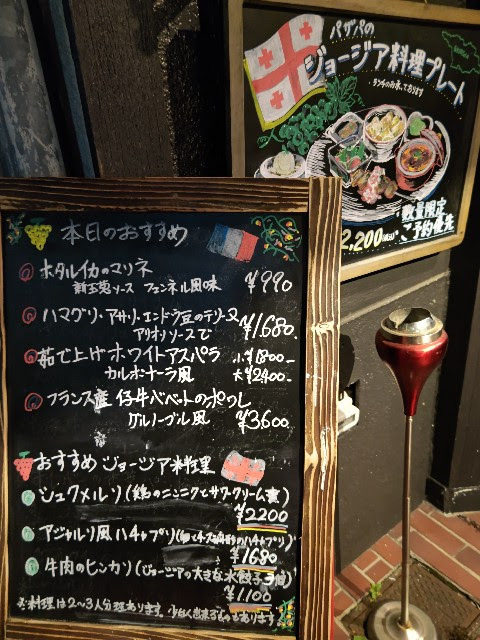 パザパの
ジョージア料理プレート
数量限定
ご予約優先
2,200(税込)
本日のおすすめ
ホタルイカのマリネ
新玉葱ソース フェンネル風味 ¥990
ハマグリ・アサリ・エンドウ豆のテリーヌ
アリオリソースで ¥1,680
茹で上げホワイトアスパラ 小¥1800-
カルボナーラ風 大¥2400-
フランス産 仔牛バベットのポワレ
グルノーブル風 ¥3600
おすすめ ジョージア料理
シュクメルリ(鶏のニンニクとサワークリーム煮)
¥2200
アジャルリ風ハチャプリ
¥1680
牛肉のヒンカリ(ジョージアの大きな水餃子3個)
¥1100
※料理は2〜3人分あります。